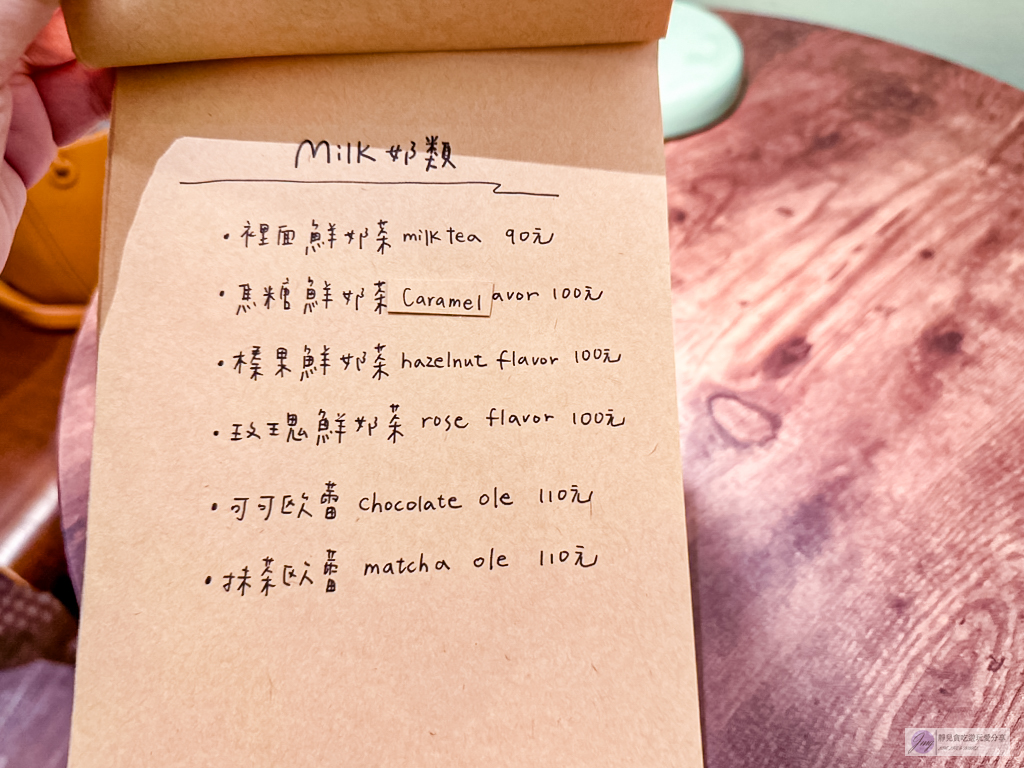 Milk 奶類
・裡面鮮奶茶 milk tea 90元
・焦糖鮮奶茶 Caramel avor 100元
・榛果鮮奶茶 hazelnut flavor 100元
・玫瑰鮮奶茶 rose flavor 100元
・可可歐蕾 chocolate ole 110元
・抹茶歐蕾 matcha ole 110元
靜見貪吃愛玩愛分享